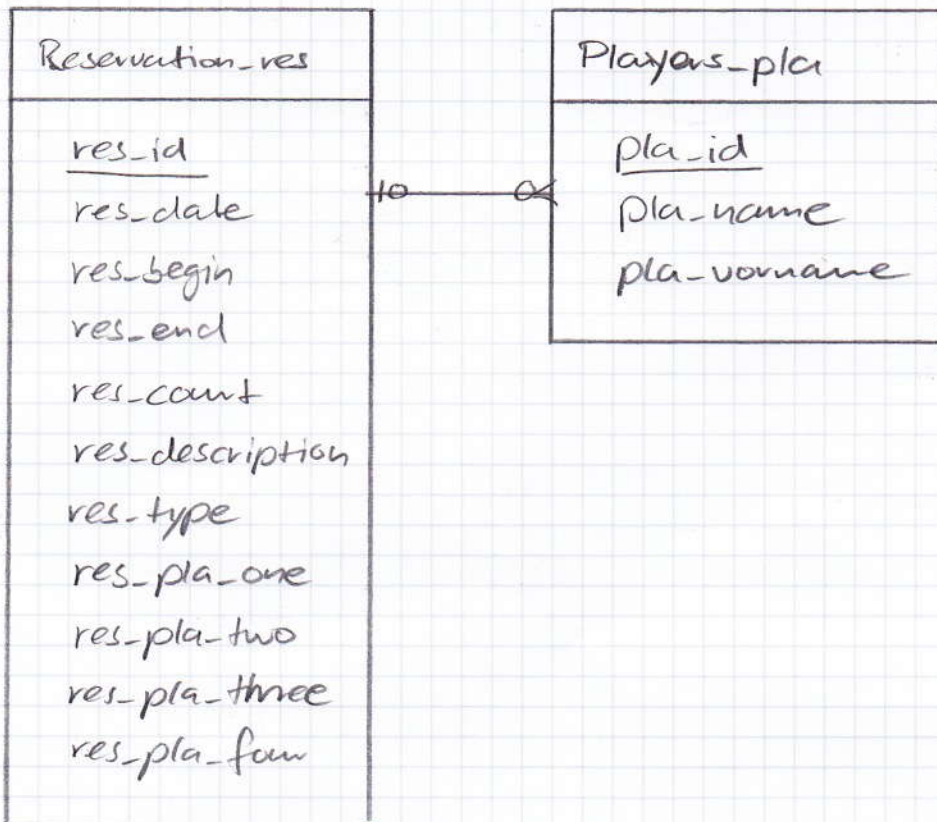 Reservation_res
res_id
res_date
res_begin
res_end
res_count
res_description
res_type
res_pla_one
res_pla_two
res_pla_three
res_pla_four
Players_pla
pla_id
pla_name
pla_vorname